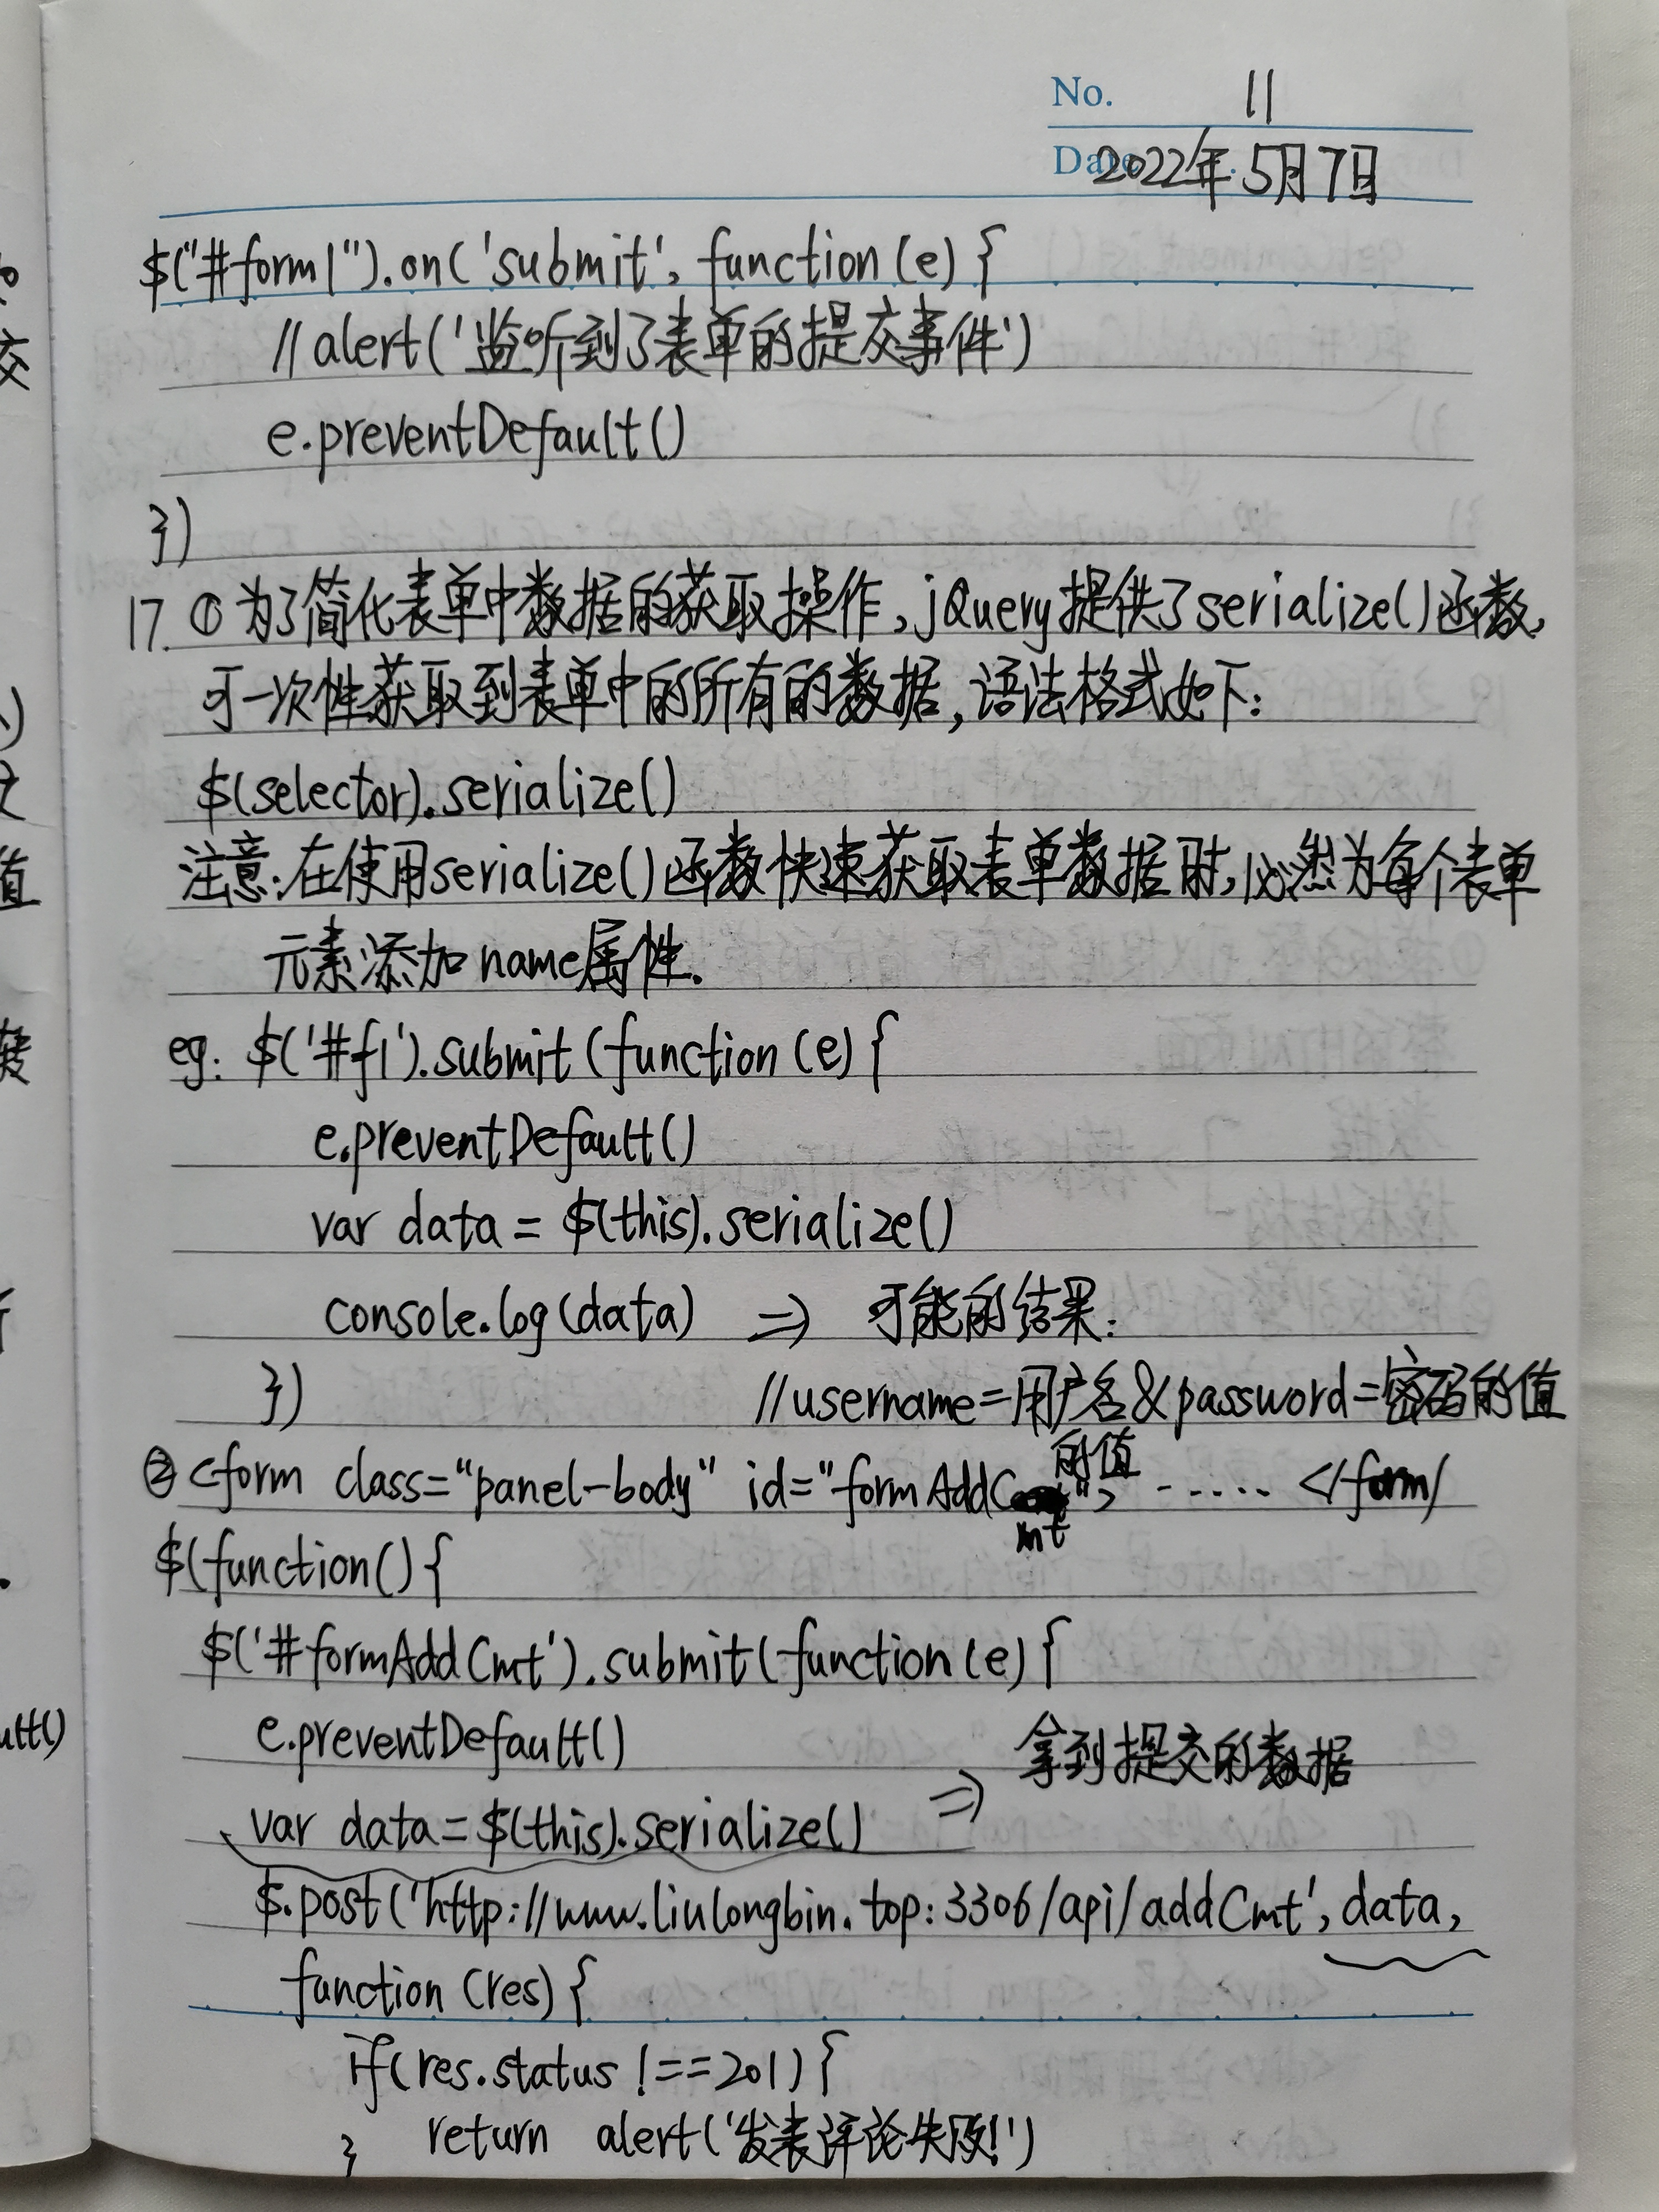 No. 11
Date 2022年5月7日
$("#form1").on('submit', function(e){
//alert('监听到了表单的提交事件')
e.preventDefault()
})
17.①为了简化表单中数据的获取操作,jQuery提供了serialize()函数,
可一次性获取到表单中的所有的数据,语法格式如下:
$(selector).serialize()
注意:在使用serialize()函数快速获取表单数据时,必然为每个表单
元素添加name属性.
eg: $('#f1').submit(function(e){
e.preventDefault()
var data = $(this).serialize()
console.log(data) => 可能的结果:
}) //username=用户名&password=密码的值
的值
②<form class="panel-body" id="formAddCmt"> ...... </form/
$(function(){
$('#formAddCmt').submit(function(e){
e.preventDefault()
var data=$(this).serialize() => 拿到提交的数据
$.post('http://www.liulongbin.top:3306/api/addCmt', data,
function(res){
if(res.status !==201){
} return alert('发表评论失败!')
交
值
转
ult()